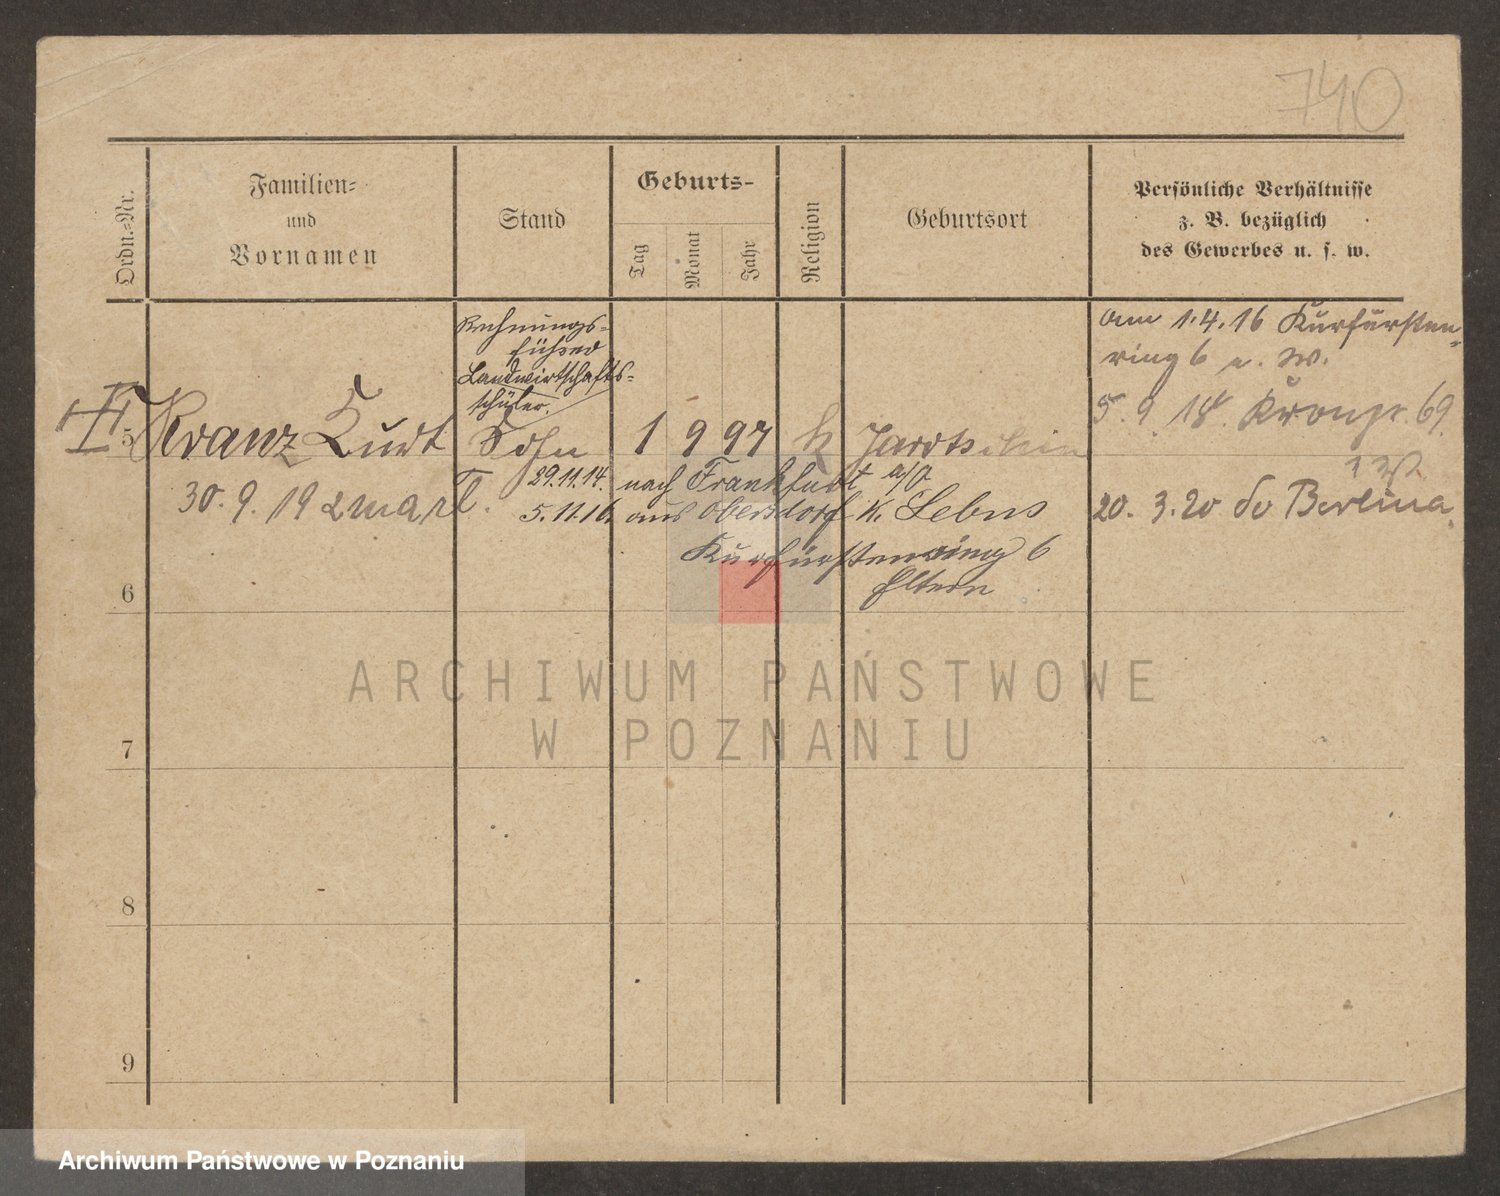 740
Ordn.-Nr.
Familien-
und
Vornamen
Stand
Geburts-
Tag
Monat
Jahr
Religion
Geburtsort
Persönliche Verhältnisse
z. B. bezüglich
des Gewerbes u. s. w.
Rechnungs-
führer
Landwirtschafts-
schüler.
am 1.4.16 Kürfürsten-
ring 6 u. W.
5. 9. 18. Kronpr. 69.
5
Kranz Kurt
Sohn
1 9 97
k
Jarotschin
29.11.14. nach Frankfurt a/O
30. 9. 19
5.11.16. aus Obersdorf K. Lebus
20. 3. 20 do Berlina
Kürfürstenring 6
Eltern
6
7
8
9
ARCHIWUM PAŃSTWOWE
W POZNANIU
Archiwum Państwowe w Poznaniu